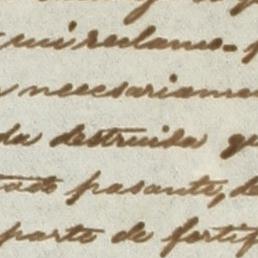 mi reclamo.
necesariame
da destruida qu
pasante, de
parte de fortif